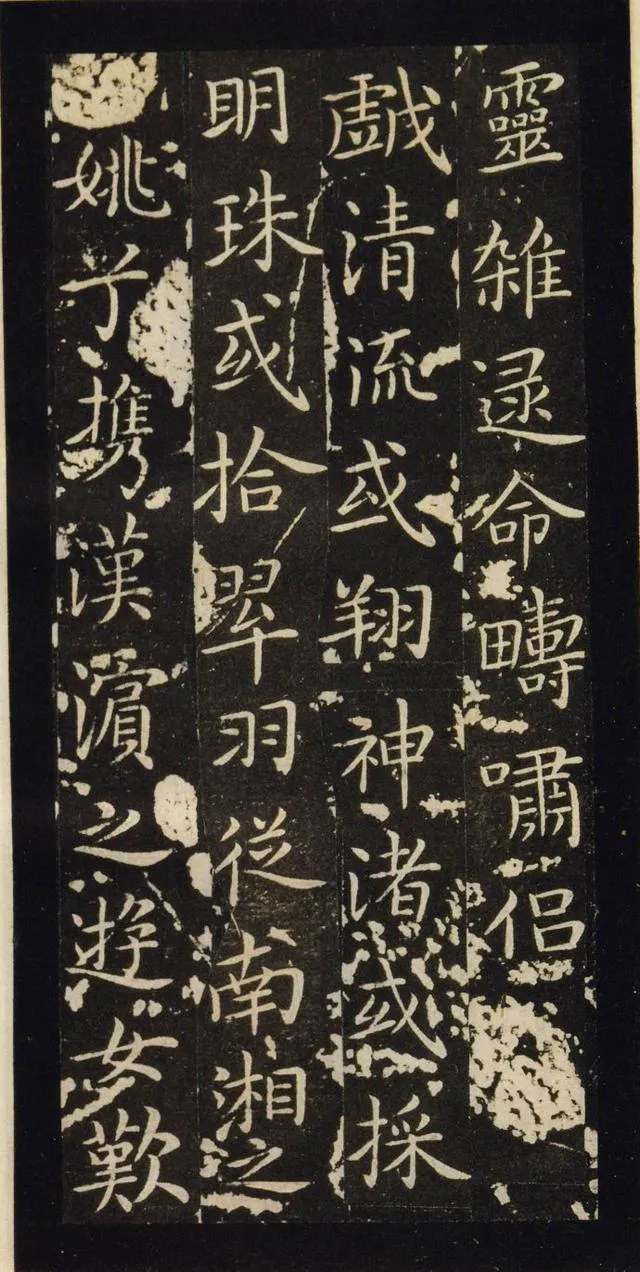 靈雑逯命疇嘯侣
戯清流或翔神渚或採
明珠或拾翠羽從南湘之
姚兮携漢濱之遊女歎